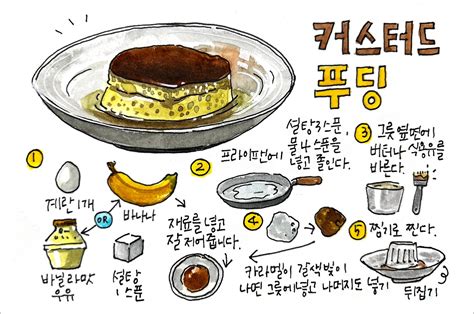 커스터드
푸딩
1
계란 1개
OR
바나나
바닐라맛
우유
설탕
1스푼
재료를 넣고
잘 저어줍니다.
2
프라이팬에
설탕 3스푼,
물 4스푼을
넣고 졸인다.
3 그릇 옆면에
버터나 식용유를
바른다.
4
카라멜이 갈색빛이
나면 그릇에 넣고 나머지도 넣기
5 찜기로 찐다.
뒤집기